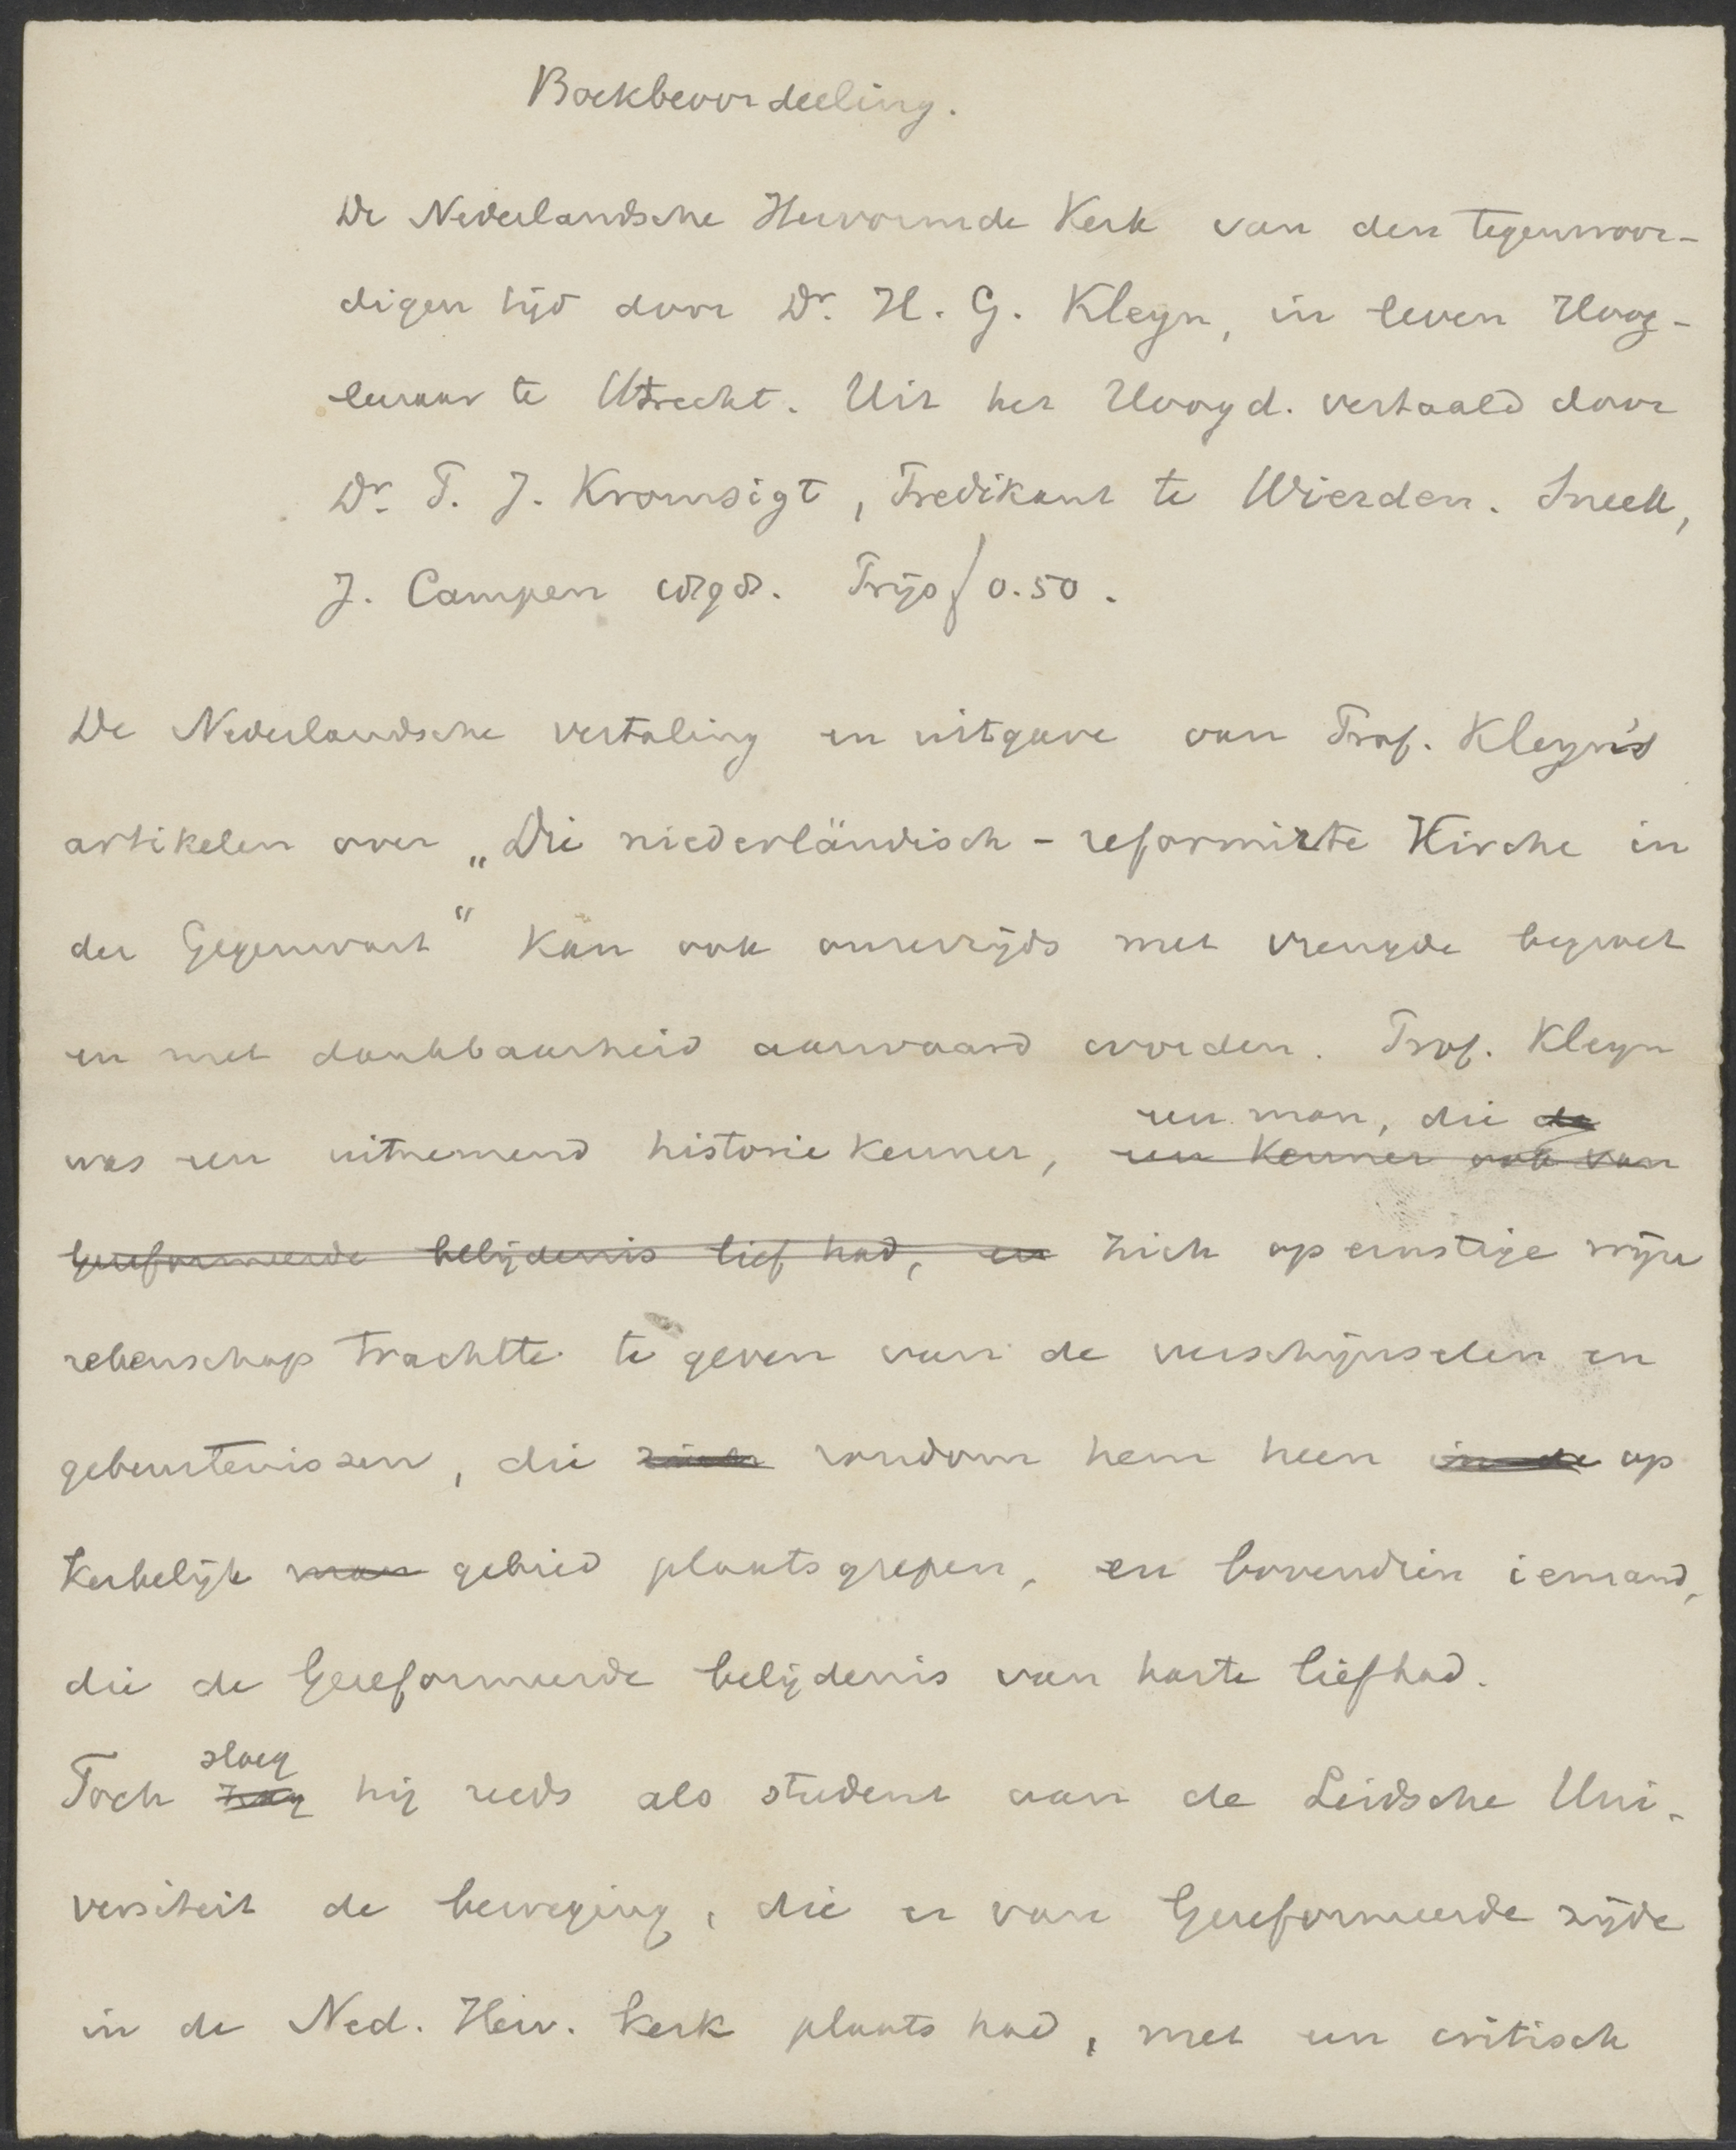 Boekbeoordeeling.
De Nederlandsche Hervormde Kerk van den tegenwoor-
digen tijd door Dr. H. G. Kleyn, in leven Hoog-
leeraar te Utrecht. Uit het Hoogd. vertaald door
Dr. P. J. Kromsigt, Predikant te Wierden. Sneek,
J. Campen 1898. Prijs f 0.50.
De Nederlandsche vertaling en uitgave van Prof. Kleyn's
artikelen over „Die niederländisch-reformirte Kirche in
der Gegenwart" kan ook onzerzijds met vreugde begroet
en met dankbaarheid aanvaard worden. Prof. Kleyn
een man, die de
was een uitnemend historiekenner, een kenner ook van
Gereformeerde belijdenis lief had, en zich op ernstige wijze
rekenschap trachtte te geven van de verschijnselen en
gebeurtenissen, die zich rondom hem heen in de op
kerkelijk gebied plaatsgrepen, en bovendien iemand,
die de Gereformeerde belijdenis van harte liefhad.
sloeg
Toch zag hij reeds als student aan de Leidsche Uni-
versiteit de beweging, die er van Gereformeerde zijde
in de Ned. Herv. Kerk plaats had, met een critisch